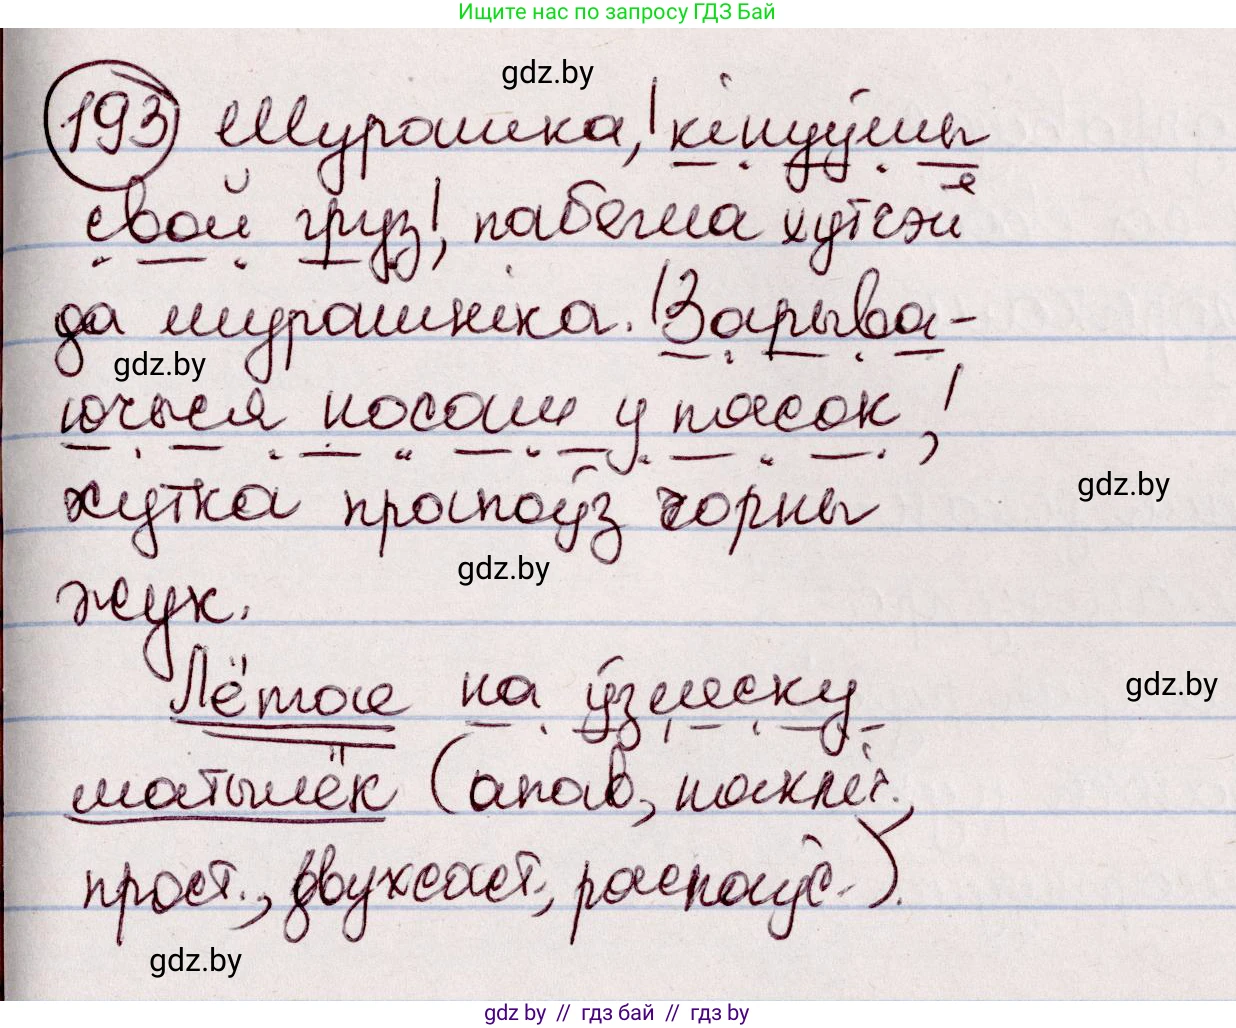 Ищите нас по запросу ГДЗ Бай
gdz.by
193 Мурашка, кінуўшы
свой груз, пабегла хутсэй
да мурашніка. Зарыва-
gdz.by
ючыся носам у пясок,
gdz.by
хутка прапоўз чорны
gdz.by
жук.
Лётае на ўзлеску
gdz.by
матылёк (апав., няклічн.,
прост., двухсаст., распаўс.).
gdz.by
gdz.by // гдз бай // гдз by